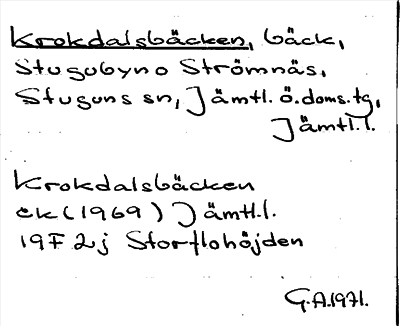 Krokdalsbäcken, bäck,
Stugubyn o Strömnäs,
Stuguns sn, Jämtl. ö. doms. tg,
Jämtl. l.
Krokdalsbäcken
ek (1969) Jämtl. l.
19F 2j Storflohöjden
G.A. 1971.